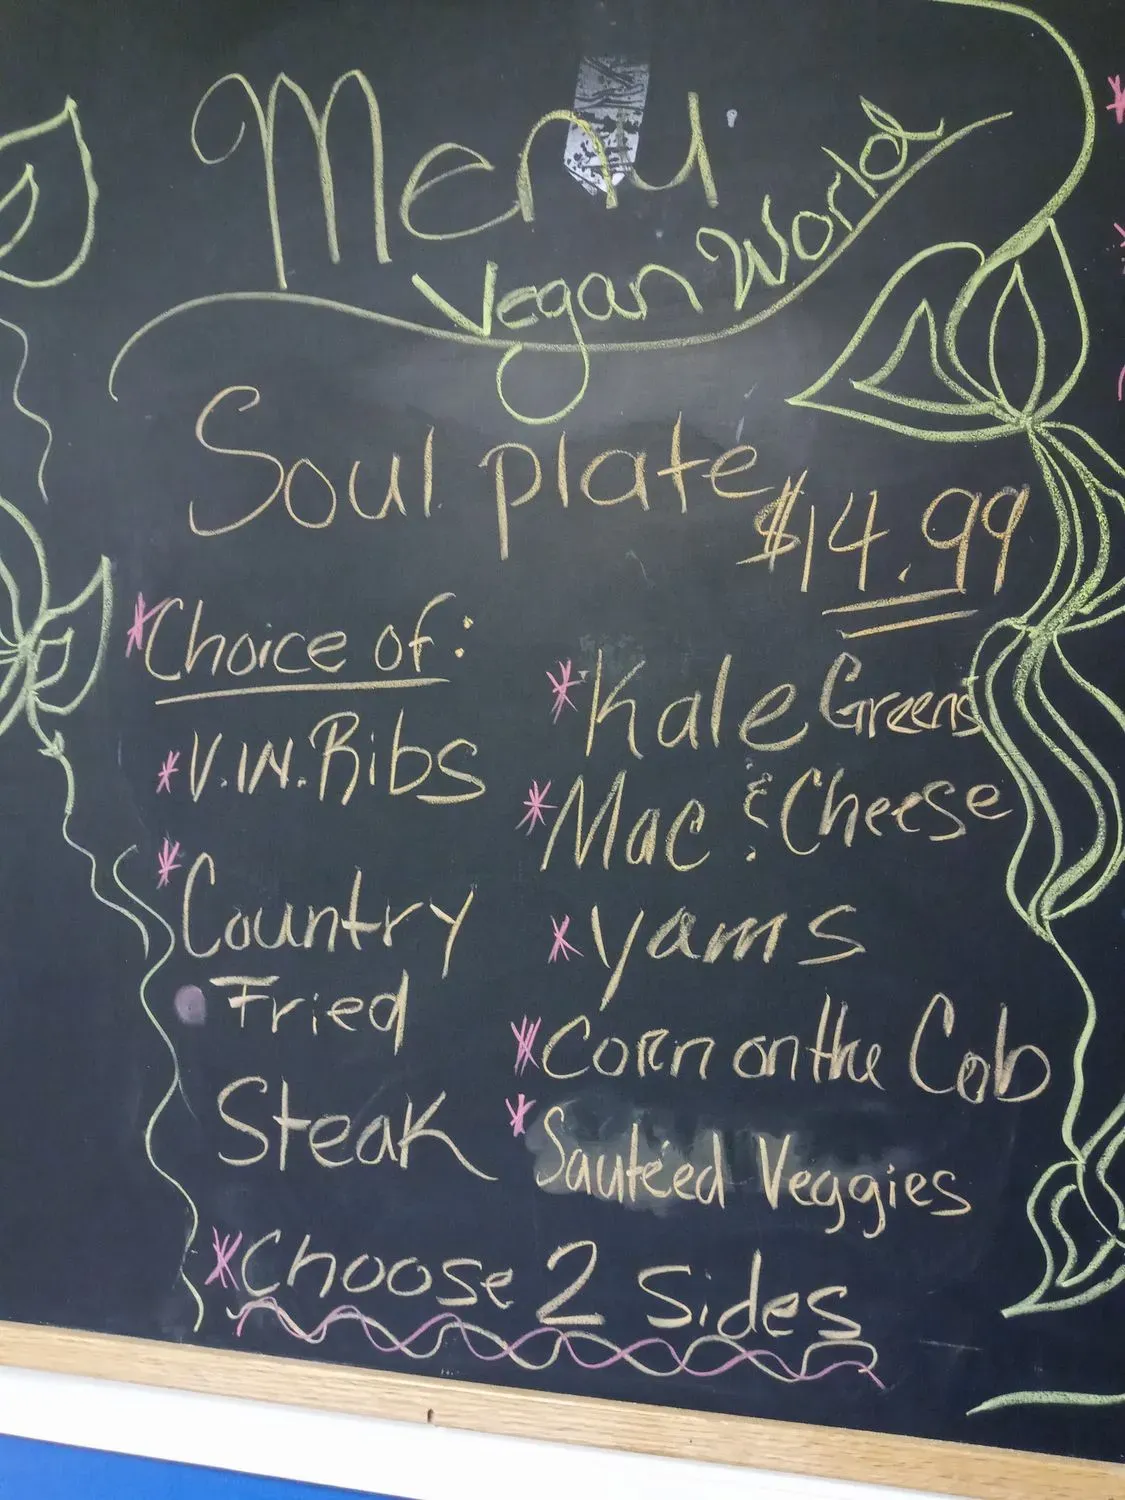 Menu
Vegan World
Soul plate
$14.99
*Choice of:
*V.IN.Ribs
*Country
Fried
Steak
*Kale Greens
*Mac & Cheese
*Yams
*Corn on the Cob
*Sautéed Veggies
*Choose 2 Sides